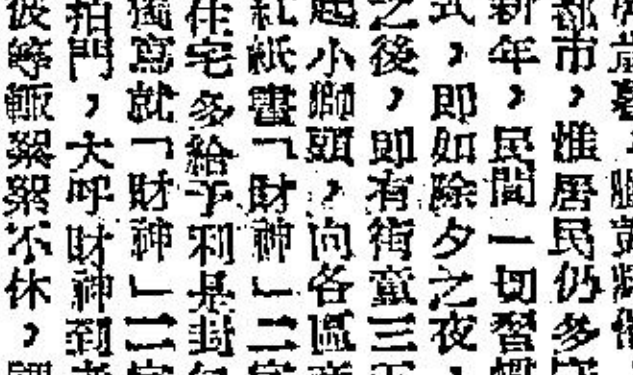 歲暮
都市，惟居民仍多守
新年，民間一切習慣
式，即如除夕之夜，
之後，即有街童三五
起小獅頭，向各區商
紅紙書「財神」二字
住宅多給予利是封包
寫就「財神」二字
拍門，大呼財神到者
彼等輒絮絮不休，